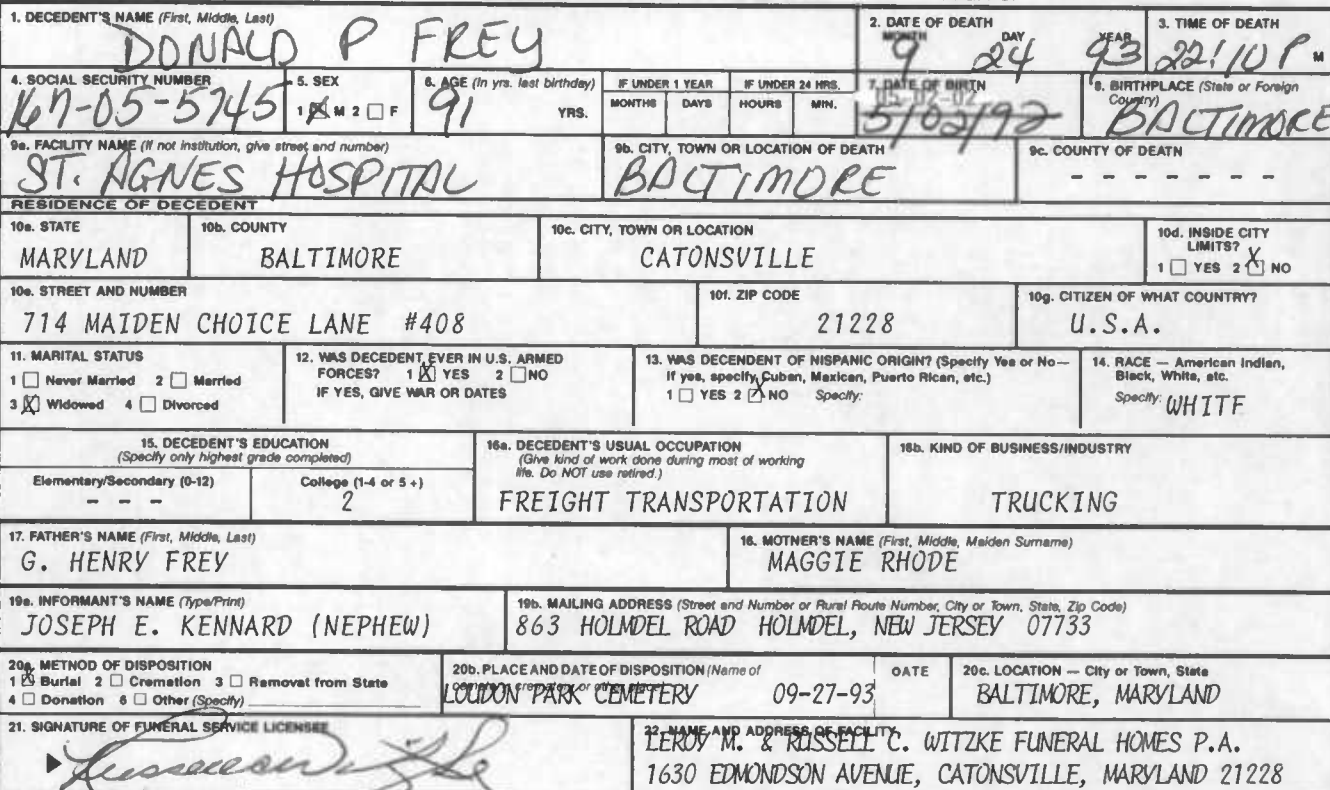 1. DECEDENT'S NAME (First, Middle, Last)
DONALD P FREY
2. DATE OF DEATH
MONTH DAY YEAR
9 24 93
3. TIME OF DEATH
22:10 P M
4. SOCIAL SECURITY NUMBER
167-05-5745
5. SEX
1 ☒ M 2 ☐ F
6. AGE (In yrs. last birthday)
91 YRS.
IF UNDER 1 YEAR
MONTHS DAYS
IF UNDER 24 HRS.
HOURS MIN.
7. DATE OF BIRTH
05-02-02
5/02/92
8. BIRTHPLACE (State or Foreign Country)
BALTIMORE
9a. FACILITY NAME (If not institution, give street and number)
ST. AGNES HOSPITAL
9b. CITY, TOWN OR LOCATION OF DEATH
BALTIMORE
9c. COUNTY OF DEATH
- - - - - - -
RESIDENCE OF DECEDENT
10a. STATE
MARYLAND
10b. COUNTY
BALTIMORE
10c. CITY, TOWN OR LOCATION
CATONSVILLE
10d. INSIDE CITY LIMITS?
1 ☐ YES 2 ☒ NO
10e. STREET AND NUMBER
714 MAIDEN CHOICE LANE #408
10f. ZIP CODE
21228
10g. CITIZEN OF WHAT COUNTRY?
U.S.A.
11. MARITAL STATUS
1 ☐ Never Married 2 ☐ Married
3 ☒ Widowed 4 ☐ Divorced
12. WAS DECEDENT EVER IN U.S. ARMED
FORCES? 1 ☒ YES 2 ☐ NO
IF YES, GIVE WAR OR DATES
13. WAS DECENDENT OF NISPANIC ORIGIN? (Specify Yes or No—
If yes, specify Cuban, Mexican, Puerto Rican, etc.)
1 ☐ YES 2 ☒ NO Specify:
14. RACE — American Indian,
Black, White, etc.
Specify: WHITF
15. DECEDENT'S EDUCATION
(Specify only highest grade completed)
Elementary/Secondary (0-12)
- - -
College (1-4 or 5 +)
2
16a. DECEDENT'S USUAL OCCUPATION
(Give kind of work done during most of working
life. Do NOT use retired.)
FREIGHT TRANSPORTATION
16b. KIND OF BUSINESS/INDUSTRY
TRUCKING
17. FATHER'S NAME (First, Middle, Last)
G. HENRY FREY
18. MOTNER'S NAME (First, Middle, Maiden Surname)
MAGGIE RHODE
19a. INFORMANT'S NAME (Type/Print)
JOSEPH E. KENNARD (NEPHEW)
19b. MAILING ADDRESS (Street and Number or Rural Route Number, City or Town, State, Zip Code)
863 HOLMDEL ROAD HOLMDEL, NEW JERSEY 07733
20a. METNOD OF DISPOSITION
1 ☒ Burial 2 ☐ Cremation 3 ☐ Removal from State
4 ☐ Donation 6 ☐ Other (Specify)
20b. PLACE AND DATE OF DISPOSITION (Name of
cemetery, crematory or other place) DATE
LOUDON PARK CEMETERY 09-27-93
20c. LOCATION — City or Town, State
BALTIMORE, MARYLAND
21. SIGNATURE OF FUNERAL SERVICE LICENSEE
22. NAME AND ADDRESS OF FACILITY
LEROY M. & RUSSELL C. WITZKE FUNERAL HOMES P.A.
1630 EDMONDSON AVENUE, CATONSVILLE, MARYLAND 21228